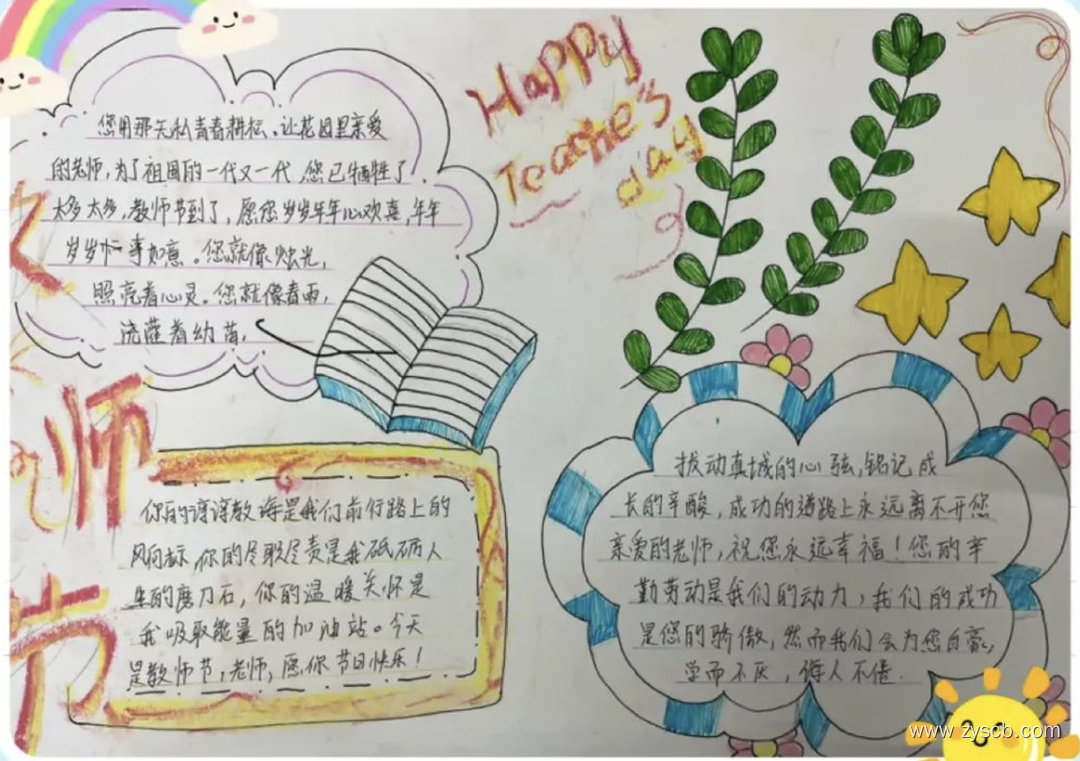 教
师
节
Happy
Teache's
day
您用那无私青春耕坛,让花园里亲爱
的老师,为了祖国的一代又一代,您已牺牲了
太多太多,教师节到了,愿您岁岁年年心欢喜,年年
岁岁忻事如意。您就像烛光,
照亮着心灵。您就像春雨,
浇灌着幼苗,
你的谆谆教诲是我们前行路上的
风向标,你的尽职尽责是我砥砺人
生的磨刀石,你的温暖关怀是
我吸取能量的加油站。今天
是教师节,老师,愿你节日快乐!
拔动真城的心弦,铭记成
长的辛酸,成功的道路上永远离不开您
亲爱的老师,祝您永远幸福!您的辛
勤劳动是我们的动力,我们的成功
是您的骄傲,然而我们会为您自豪,
学而不厌,悔人不倦.
www.zyscb.com